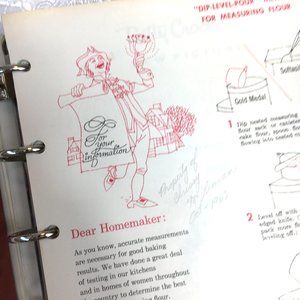 "DIP-LEVEL-POUR"
FOR MEASURING FLOUR
For
Your
information
Gold Medal
Softasilk
1 Dip nested measuring
flour sack or canister
cake flour, spoon flour
flowing into nested cup
2 Level off with
edged knife.
pack more flour
leveling off.
Property of
Dear Homemaker:
As you know, accurate measurements
are necessary for good baking
results. We have done a great deal
of testing in our kitchens
and in homes of women throughout
country to determine the best
flour.